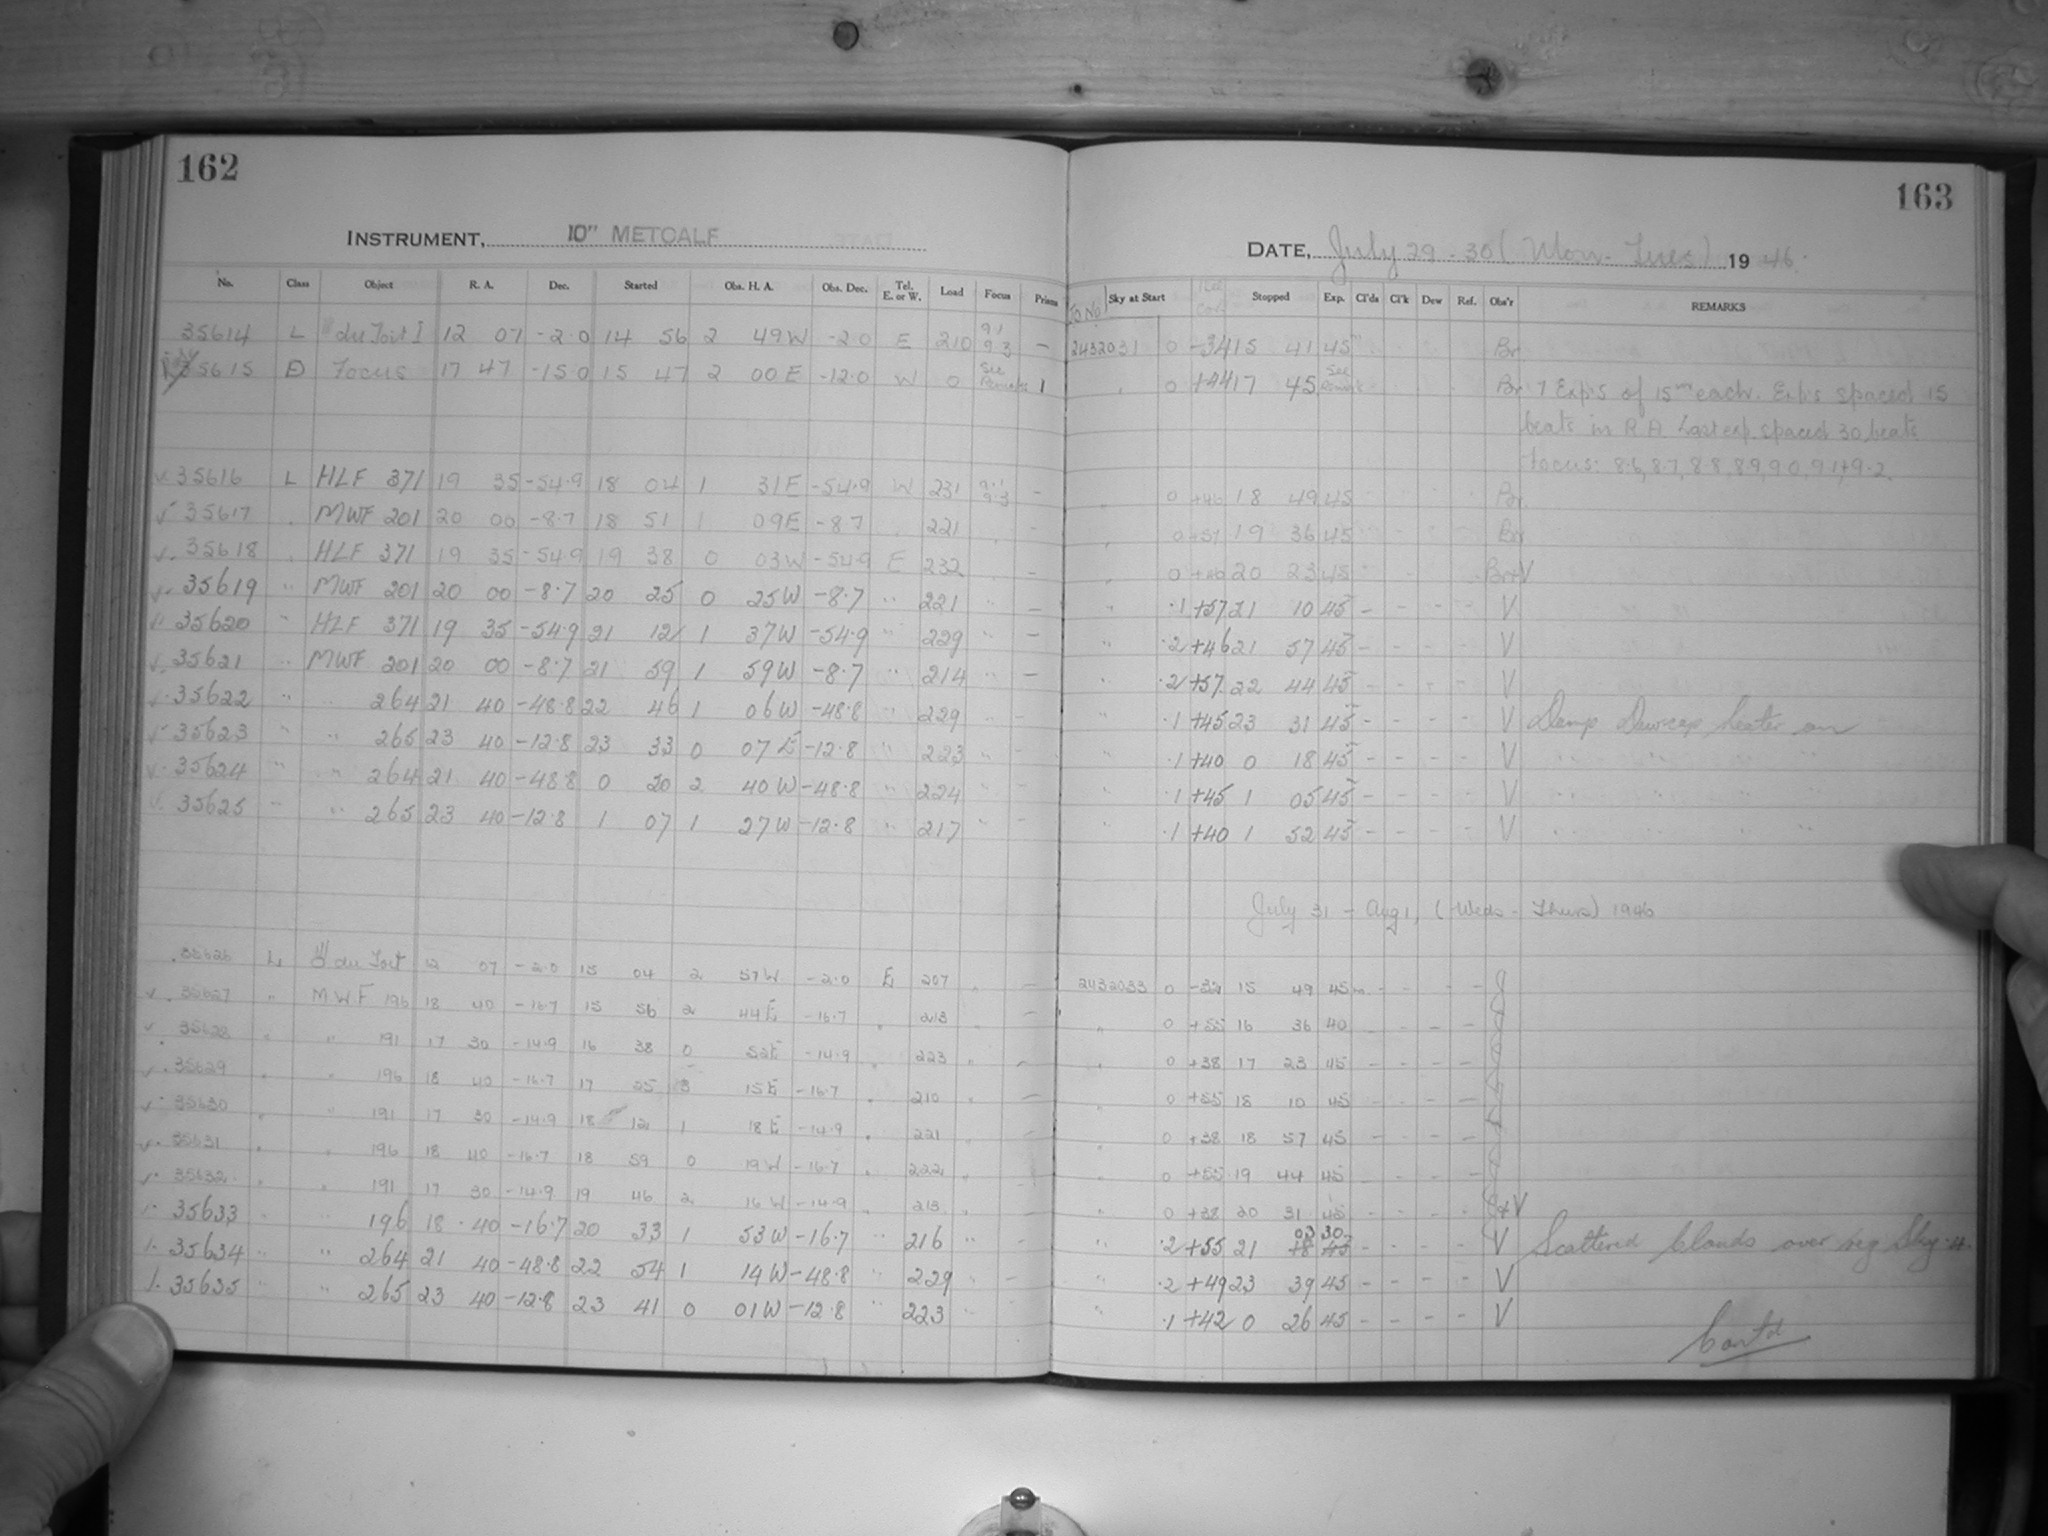 162
163
INSTRUMENT, 10" METCALF
DATE, July 29-30 (Mon-Tues) 1946.
No. Class Object R. A. Dec. Started Obs. H. A. Obs. Dec. Tel. E. or W. Load Focus Prism
J.D. No Sky at Start Stopped Exp. Cl'ds Cl'k Dew Ref. Obs'r REMARKS
35614 L du Toit I 12 07 -2.0 14 56 2 49W -2.0 E 210 9.1 9.3 — 2432031 0 -34 15 41 45m Br
35615 D Focus 17 47 -15.0 15 47 2 00E -12.0 W 0 See Remarks 1 " 0 +44 17 45 See Remarks Br 7 Exp's of 15m each. Exp's spaced 15
beats in R.A. Last exp. spaced 30 beats
Focus: 8.6, 8.7, 8.8, 8.9, 9.0, 9.1, +9.2.
√ 35616 L HLF 371 19 35 -54.9 18 04 1 31E -54.9 W 231 9.1 9.3 — 0 +46 18 49 45 Br
√ 35617 " MWF 201 20 00 -8.7 18 51 1 09E -8.7 " 221 " - " 0 +57 19 36 45 Br
√ 35618 " HLF 371 19 35 -54.9 19 38 0 03W -54.9 E 232 " - " 0 +46 20 23 45 Br+V
√ 35619 " MWF 201 20 00 -8.7 20 25 0 25W -8.7 " 221 " — " .1 +57 21 10 45 - - - - V
√ 35620 " HLF 371 19 35 -54.9 21 12 1 37W -54.9 " 229 " — " .2 +46 21 57 45 - - - - V
√ 35621 " MWF 201 20 00 -8.7 21 59 1 59W -8.7 " 214 " — " .2 +57 22 44 45 - - - - V
√ 35622 " " 264 21 40 -48.8 22 46 1 06W -48.8 " 229 " - " .1 +45 23 31 45 - - - - V Damp Dewcap heater on
√ 35623 " " 265 23 40 -12.8 23 33 0 07E -12.8 " 223 " - " .1 +40 0 18 45 - - - - V " " " "
√ 35624 " " 264 21 40 -48.8 0 20 2 40W -48.8 " 224 " - " .1 +45 1 05 45 - - - - V " " " "
√ 35625 " " 265 23 40 -12.8 1 07 1 27W -12.8 " 217 " - " .1 +40 1 52 45 - - - - V " " " "
July 31 - Aug 1, (Weds - Thurs) 1946
35626 L du Toit 12 07 -2.0 15 04 2 57W -2.0 E 207 " - 2432033 0 -32 15 49 45m - - - -
√ 35627 " MWF 196 18 40 -16.7 15 56 2 44E -16.7 " 213 " - " 0 +55 16 36 40 - - - -
√ 35628 " " 191 17 30 -14.9 16 38 0 52E -14.9 " 223 " - " 0 +38 17 23 45 - - - -
√ 35629 " " 196 18 40 -16.7 17 25 15E -16.7 " 210 " - " 0 +55 18 10 45 - - - -
√ 35630 " " 191 17 30 -14.9 18 12 1 18E -14.9 " 221 " - " 0 +38 18 57 45 - - - -
√ 35631 " " 196 18 40 -16.7 18 59 0 19W -16.7 " 222 " - " 0 +55 19 44 45 - - - -
√ 35632 " " 191 17 30 -14.9 19 46 2 16W -14.9 " 213 " - " 0 +38 20 31 45 - - - - +V
35633 " " 196 18 40 -16.7 20 33 1 53W -16.7 " 216 " - " .2 +55 21 03 30 - - - - V Scattered Clouds over reg Sky .4.
35634 " " 264 21 40 -48.8 22 54 1 14W -48.8 " 229 " - " .2 +49 23 39 45 - - - - V
35635 " " 265 23 40 -12.8 23 41 0 01W -12.8 " 223 " - " .1 +42 0 26 45 - - - - V
Contd